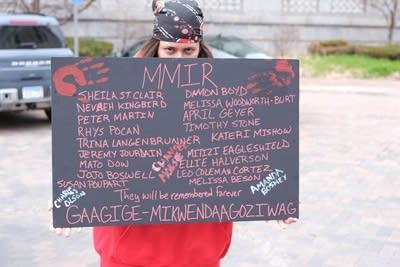 MMIR
SHEILA ST. CLAIR DAMON BOYD
NEVAEH KINGBIRD MELISSA WOODWORTH-BURT
PETER MARTIN APRIL GEYER
RHYS POCAN TIMOTHY STONE
TRINA LANGENBRUNNER KATERI MISHOW
JEREMY JOURDAIN MITIZI EAGLESHIELD
MATO DOW ELLIE HALVERSON
JOJO BOSWELL LEO COLEMAN CORTEZ
SUSAN POUPART MELISSA BESON
They will be remembered forever
GAAGIGE-MIKWENDAAGOZIWAG